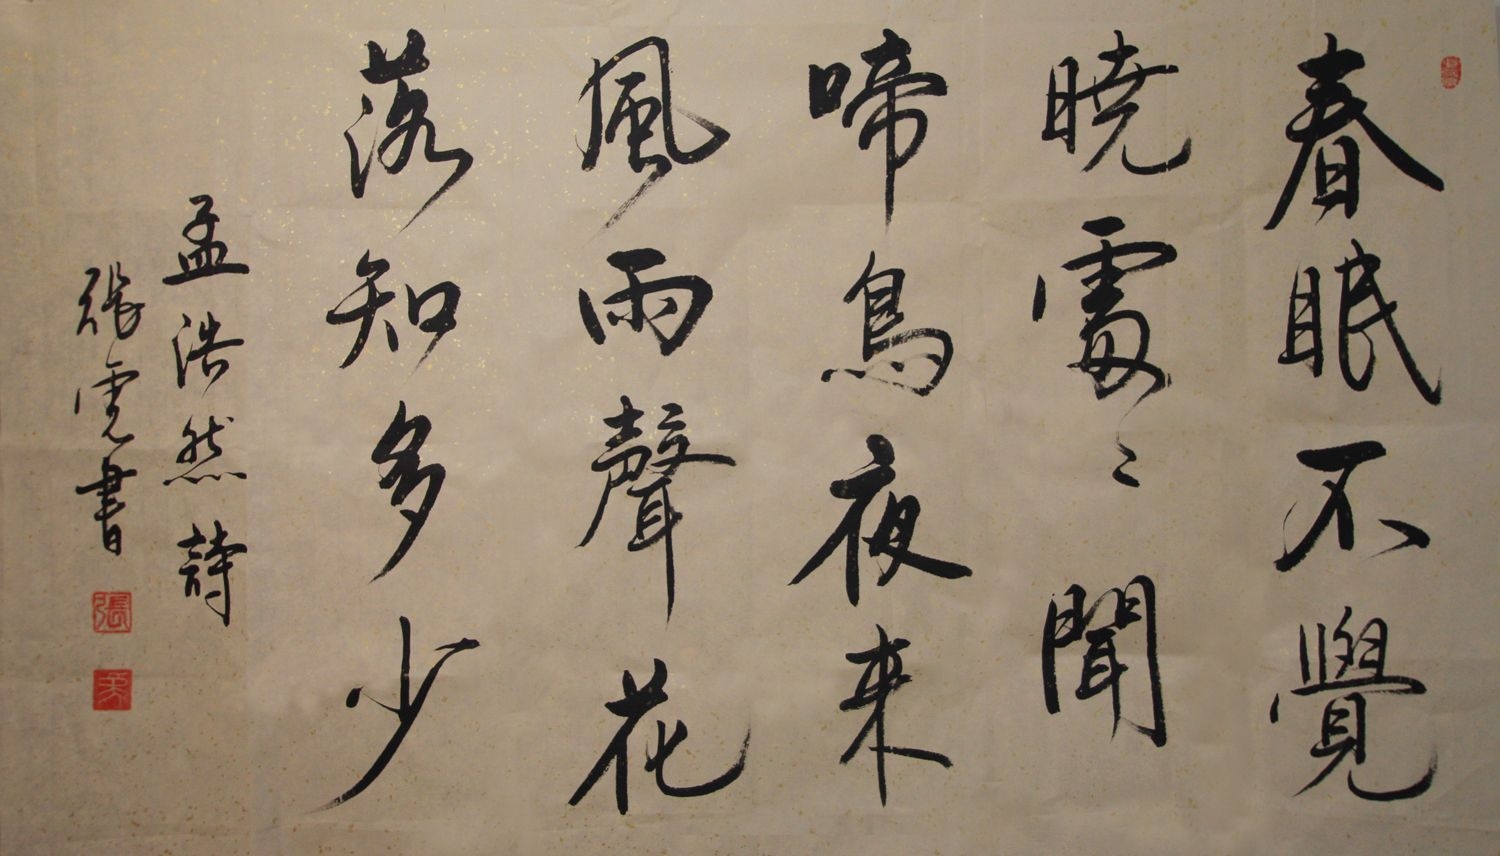 春眠不覺
曉處々聞
啼鳥夜来
風雨聲花
落知多少
孟浩然詩
張雲書
張